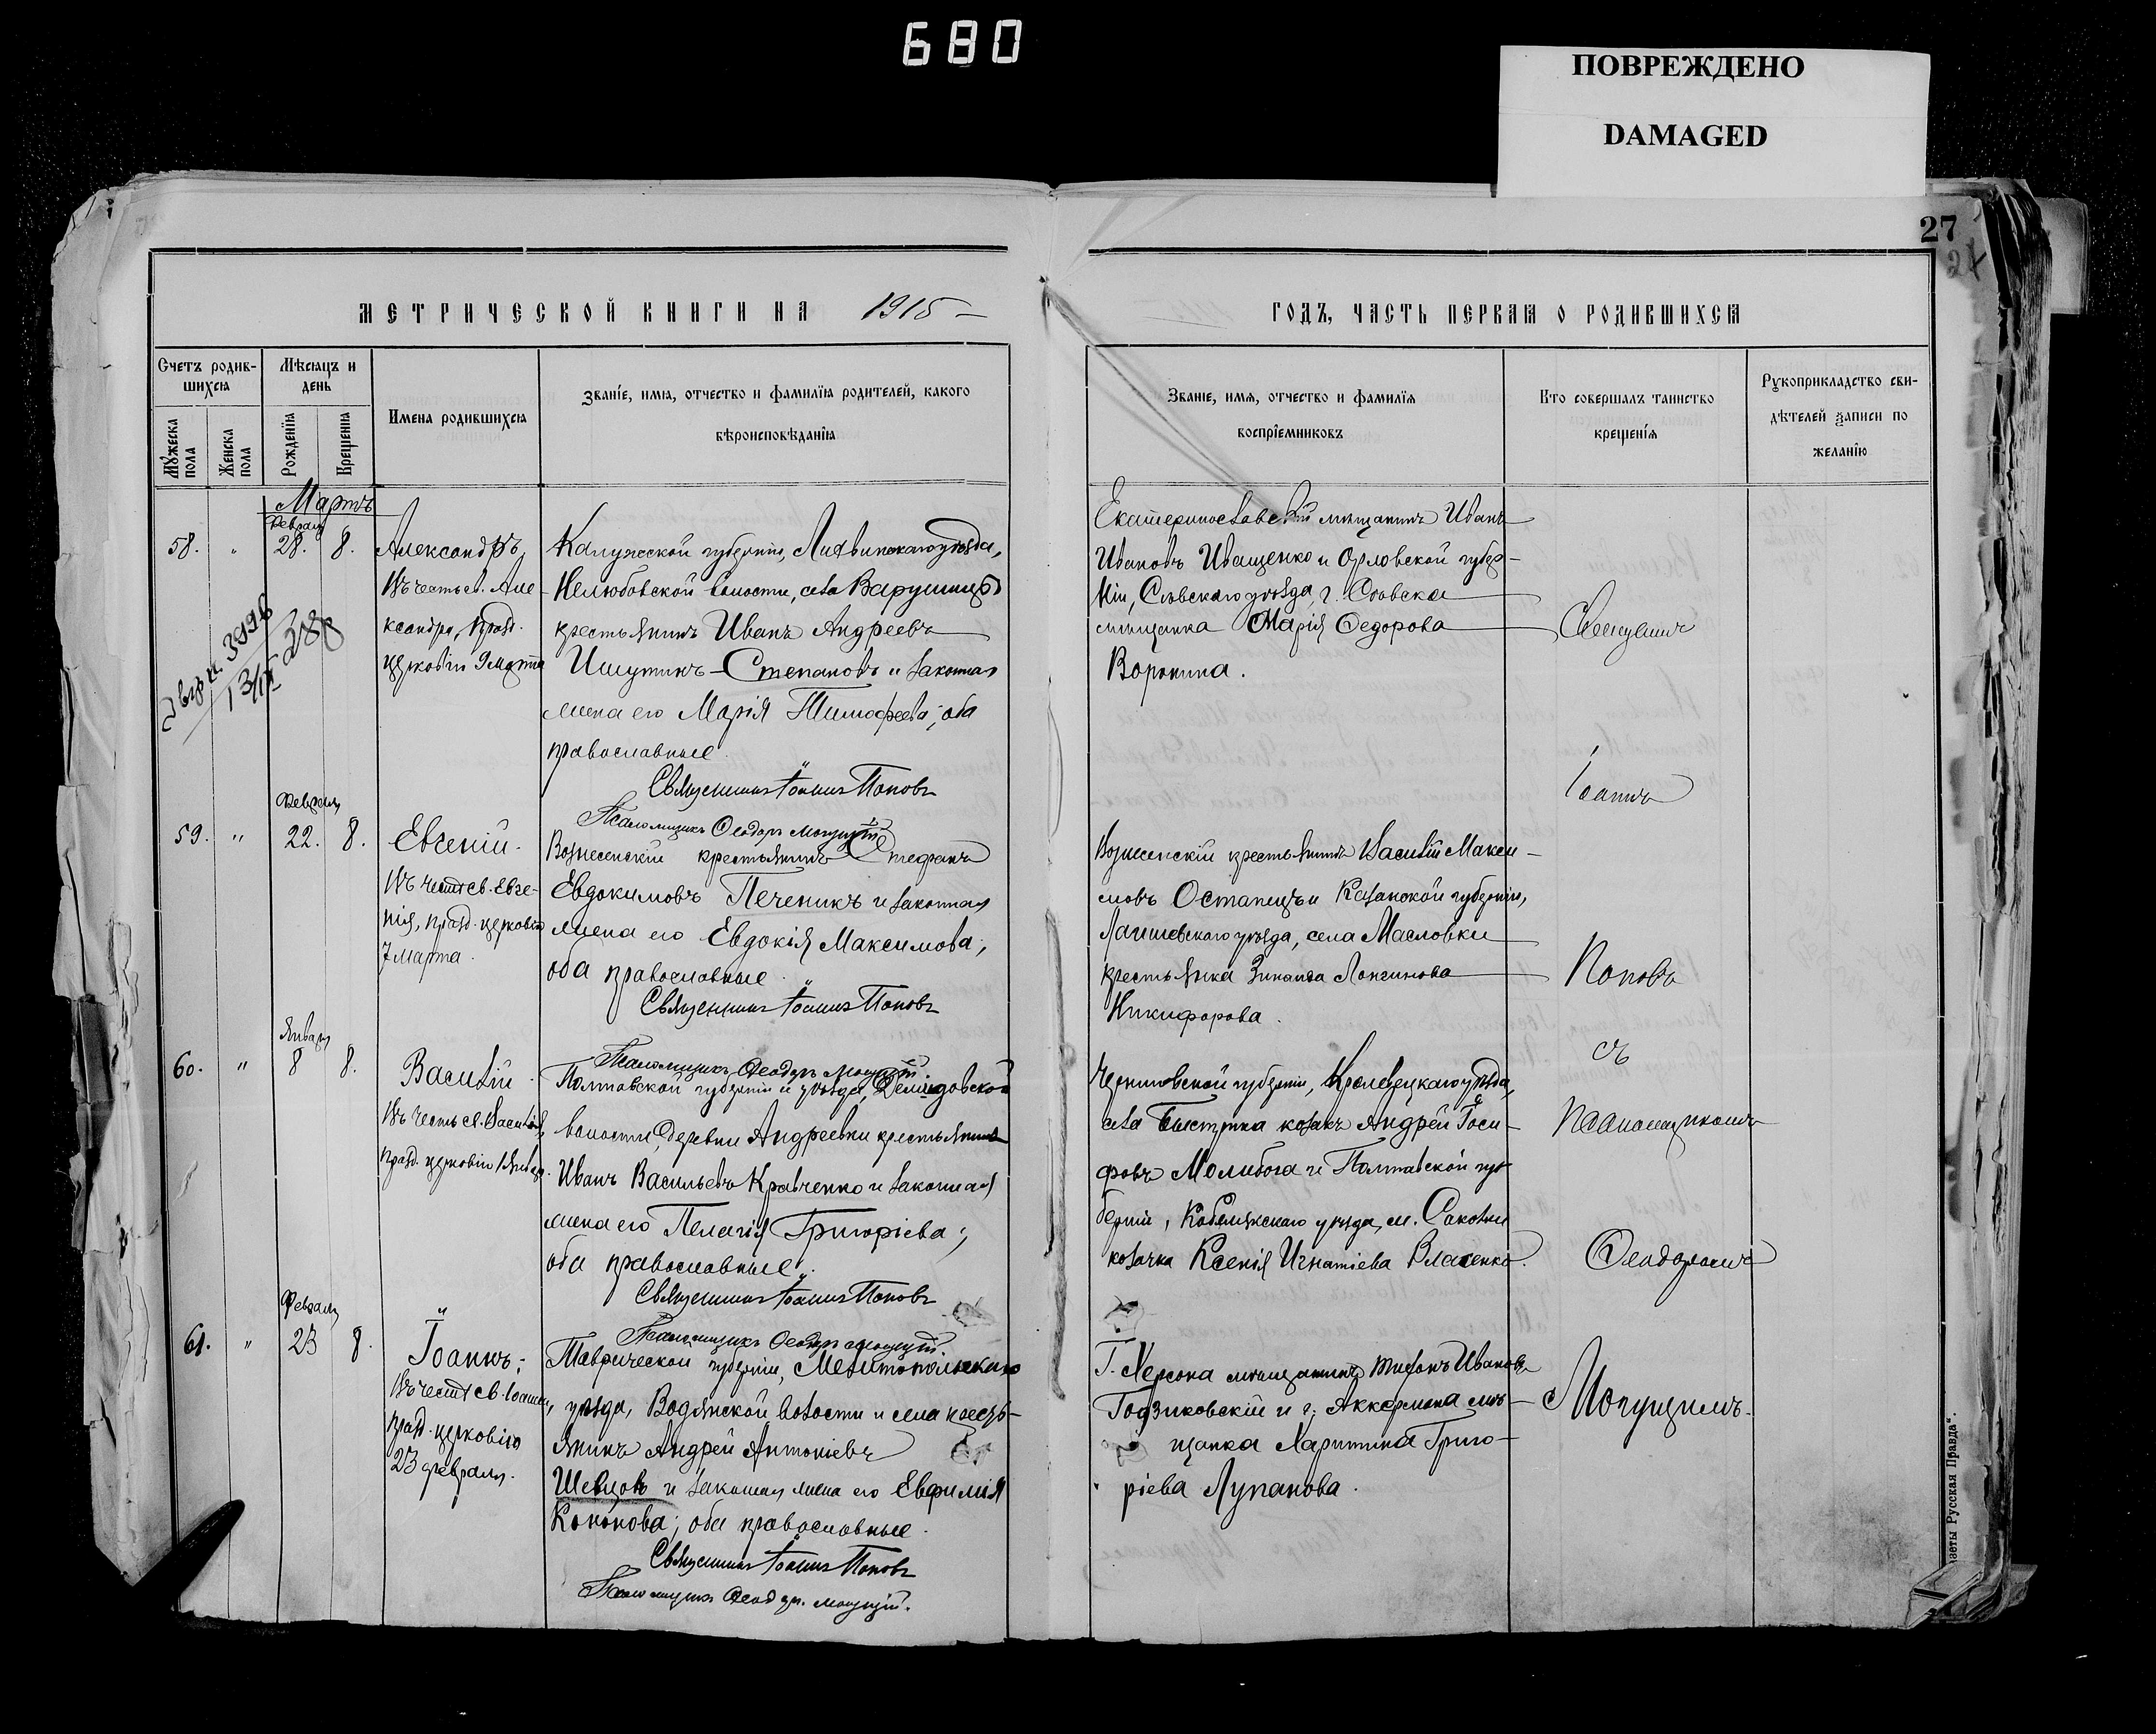 680
ПОВРЕЖДЕНО
DAMAGED
27
МЕТРИЧЕСКОЙ КНИГИ НА 1915
ГОДЪ, ЧАСТЬ ПЕРВАЯ О РОДИВШИХСЯ
Счетъ родив-
шихся
Мужеска пола
Женска пола
Мѣсяцъ и
день
Рожденія
Крещенія
Имена родившихся
Званіе, имя, отчество и фамилія родителей, какого
вѣроисповѣданія
Званіе, имя, отчество и фамилія
воспріемниковъ
Кто совершалъ таинство
крещенія
Рукоприкладство сви-
дѣтелей записи по
желанію
Мартъ
Февраля
58. " 28. 8.
Александръ,
Въ честь св. Але-
ксандра, празд.
церковію 9 марта
Калужской губерніи, Лихвинскаго уѣзда,
Нелюбовской волости, села Варушицъ
крестьянинъ Иванъ Андреевъ
Ишутинъ-Степановъ и законная
жена его Марія Тимофеева; оба
православные.
Священникъ Іоаннъ Поповъ
Псаломщикъ Ѳеодоръ Могущій
Екатеринославскій мѣщанинъ Иванъ
Ивановъ Иващенко и Орловской губер-
ніи, Сѣвскаго уѣзда, г. Сѣвска
мѣщанка Марія Ѳедорова
Воронина.
Священникъ
Февраля
59. " 22. 8.
Евгеній.
Въ честь св. Евге-
нія, празд. церковію
7 марта.
Вознесенскій крестьянинъ Стефанъ
Евдокимовъ Печеникъ и законная
жена его Евдокія Максимова;
оба православные.
Священникъ Іоаннъ Поповъ
Псаломщикъ Ѳеодоръ Могущій.
Вознесенскій крестьянинъ Василій Макси-
мовъ Остапецъ и Казанской губерніи,
Лаишевскаго уѣзда, села Масловки
крестьянка Зинаида Лонгинова
Никифорова.
Іоаннъ
Поповъ
Января
60. " 8 8.
Василій.
Въ честь св. Василія,
празд. церковію 1 января.
Полтавской губерніи и уѣзда, Демидовской
волости, деревни Андреевки крестьянинъ
Иванъ Васильевъ Кравченко и законная
жена его Пелагія Григоріева;
оба православные.
Священникъ Іоаннъ Поповъ
Псаломщикъ Ѳеодоръ Могущій.
Черниговской губерніи, Кролевецкаго уѣзда,
села Быстрика козакъ Андрей Іоси-
фовъ Молибога и Полтавской гу-
берніи, Кобелякскаго уѣзда, м. Соколки
козачка Ксенія Игнатіева Власенко.
съ
Псаломщикомъ
Ѳеодоромъ
Февраля
61. " 23 8.
Іоаннъ;
Въ честь св. Іоанна,
празд. церковію
23 февраля.
Таврической губерніи, Мелитопольскаго
уѣзда, Водянской волости и села кресть-
янинъ Андрей Антоніевъ
Шевцовъ и законная жена его Евфимія
Кононова; оба православные.
Священникъ Іоаннъ Поповъ
Псаломщикъ Ѳеодоръ Могущій.
Г. Херсона мѣщанинъ Тихонъ Ивановъ
Годзиковскій и г. Аккермана мѣ-
щанка Харитина Григо-
ріева Лупанова.
Могущимъ.
газеты Русская Правда".